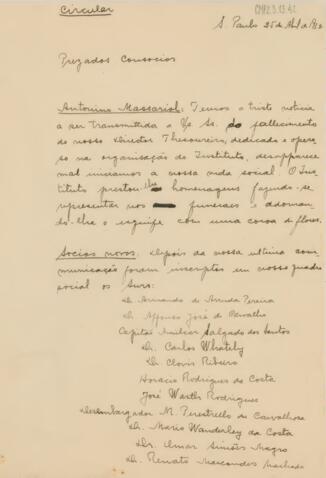 Circular
S. Paulo 25 de Abril de
Prezados Consocios
Antonino Massariol: Temos a triste noticia
a ser transmittida a Vs. Ss. do fallecimento
do nosso Director Thesoureiro, dedicado e opero
so na organisação do Instituto, desapparece
mal iniciamos a nossa vida social. O Ins
tituto prestou-lhe homenagens fazendo-se
representar nos funeraes e adornan
do-lhe o esquife com uma coroa de flores.
Socios novos. Depois da nossa ultima com
municação foram inscriptos em nosso quadro
social os Snrs:
Dr. Armando de Arruda Pereira
Dr. Affonso José de Carvalho
Capitão Amilcar Salgado dos Santos
Dr. Carlos Whately
Dr. Clovis Ribeiro
Horacio Rodrigues da Costa
José Warth Rodrigues
Desembargador M. Perestrello de Carvalhosa
Dr. Mario Wanderley da Costa
Dr. Omar Simões Magro
Dr. Renato Marcondes Machado